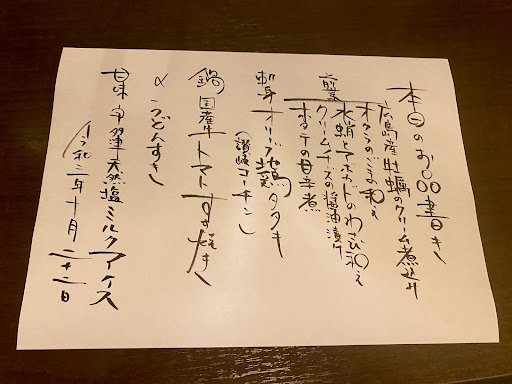 本日のお品書き
広島産牡蠣のクリーム煮込み
オクラのごま和え
前菜 水蛸とアボカドのわさび和え
クリームチーズの醤油漬け
ホタテの甘辛煮
刺身 オリーブ地鶏タタキ
(讃岐コーチン)
鍋 国産牛トマトすき焼き
〆 うどんすき
甘味 宇多津天然塩ミルクアイス
令和二年十月二十二日